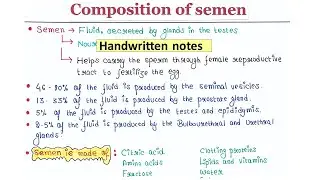 Composition of semen
Semen → Fluid, secreted by glands in the testes
Handwritten notes
→ Helps carrying the sperm through female reproductive
tract to fertilize the egg.
• 46 - 80% of the fluid is produced by the seminal vesicles.
• 13 - 33% of the fluid is produced by the prostate gland.
• 5% of the fluid is produced by the testes and epididymis.
• 2-5% of the fluid is produced by the Bulbourethral and Urethral
glands.
Semen is made of
Citric acid
Amino acids
Fructose
Clotting proteins
Lipids and vitamins
Water